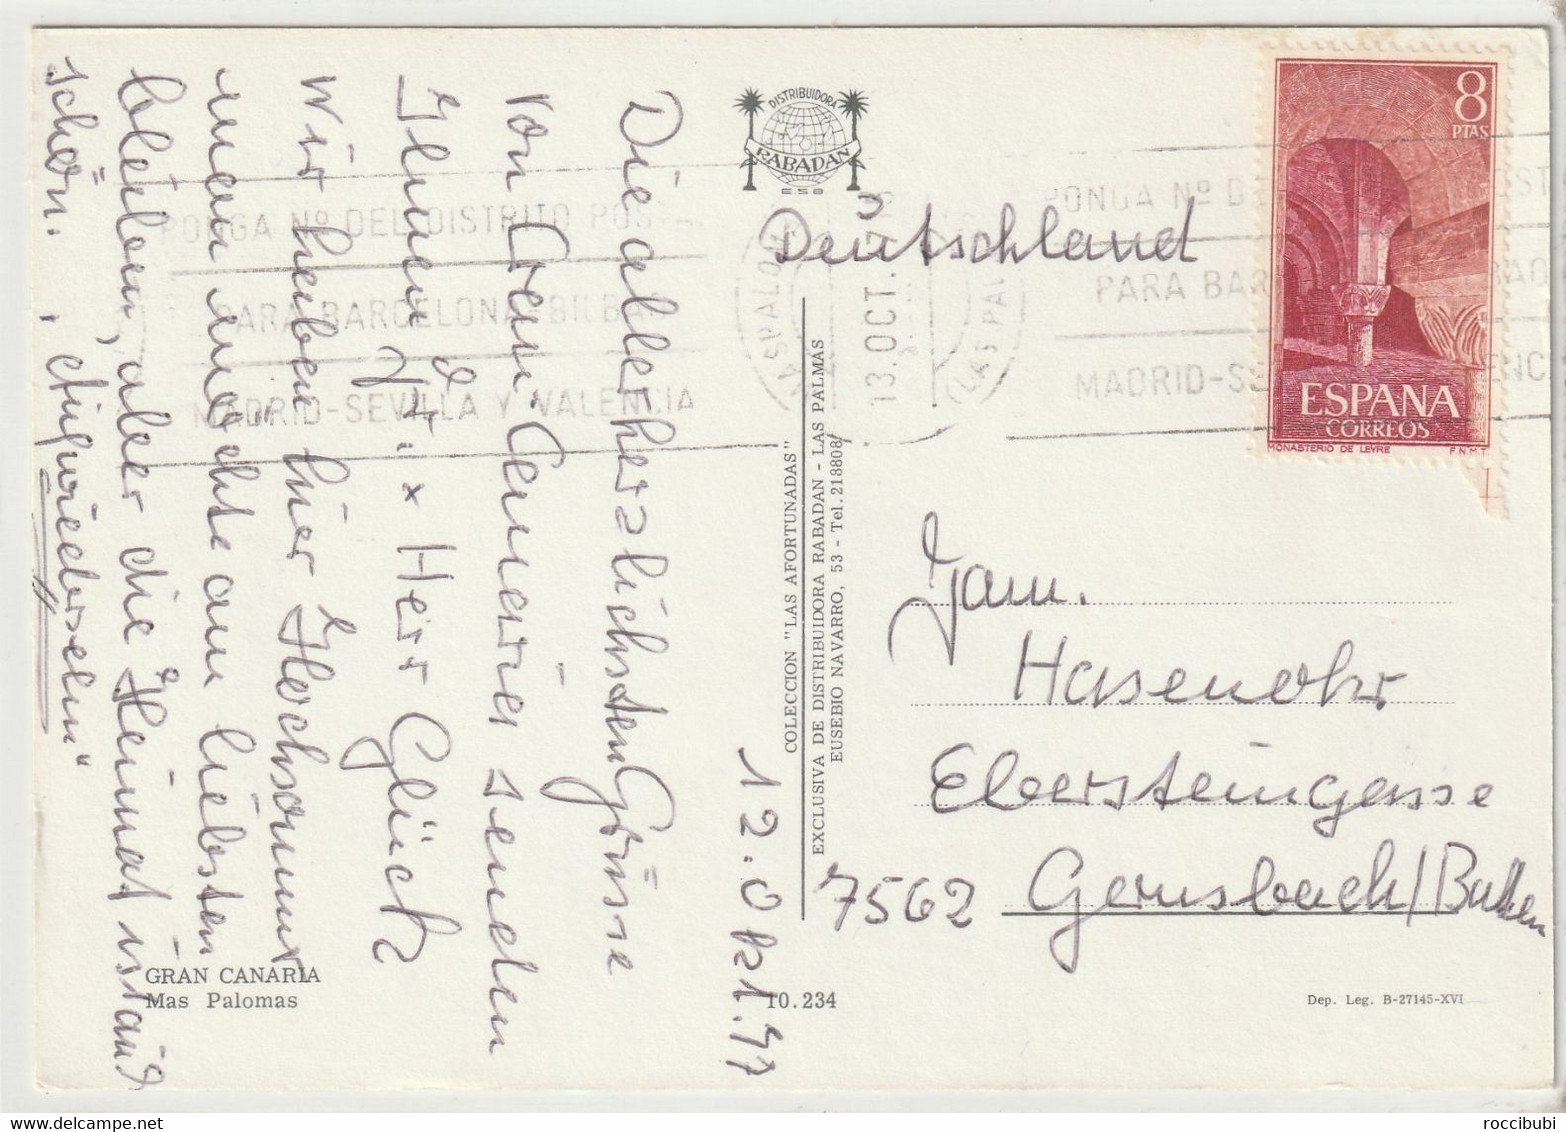 12. Okt. 77
Die allerherzlichsten Grüsse
von Gran-Canaria senden
Ihnen Fr. u. Herr Glück
Wir haben hier Hochsommer
man möchte am liebsten
bleiben, aber die Heimat ist auch
schön.
"Aufwiedersehn"
GRAN CANARIA
Mas Palomas
DISTRIBUIDORA
RABADAN
ESB
COLECCION "LAS AFORTUNADAS"
EXCLUSIVA DE DISTRIBUIDORA RABADAN - LAS PALMAS
EUSEBIO NAVARRO, 53 - Tel. 218808
10.234
Deutschland
8
PTAS
ESPANA
CORREOS
MONASTERIO DE LEYRE F.N.M.T.
PONGA Nº DEL DISTRITO POS
PARA BARCELONA-BILBA
MADRID-SEVILLA Y VALENCIA
LAS PAL
13.OCT.
PONGA Nº D
PARA BAR
MADRID-S
Fam.
Hasenohr
Ebersteingasse
7562 Gernsbach/Baden
Dep. Leg. B-27145-XVI
roccibubi